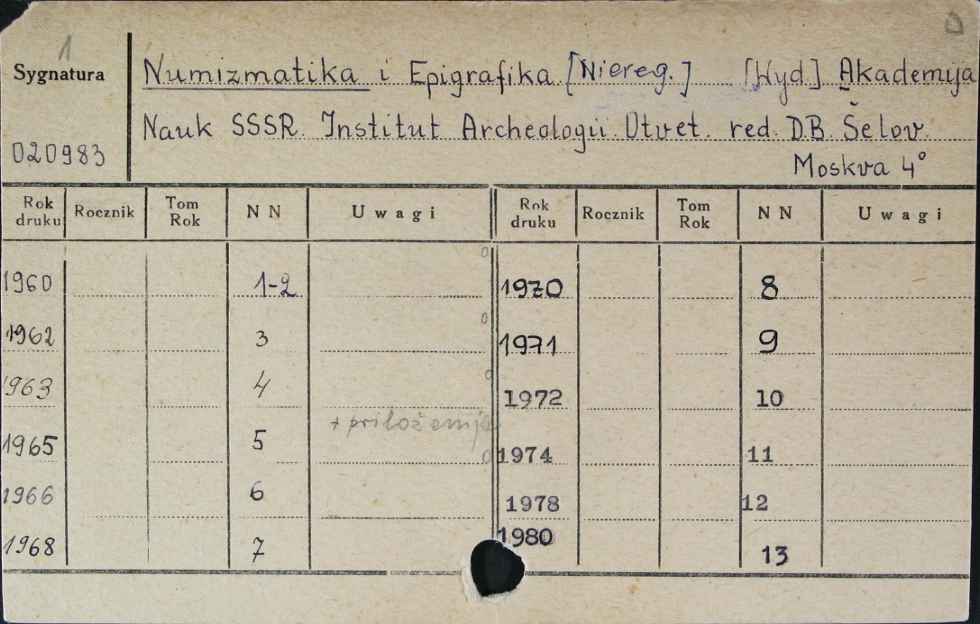 1
Sygnatura
020983
Numizmatika i Epigrafika [Niereg.] [Wyd.] Akademija
Nauk SSSR. Institut Archeologii. Otvet. red. D.B. Šelov.
Moskva 4°
Rok druku Rocznik Tom Rok NN Uwagi Rok druku Rocznik Tom Rok NN Uwagi
1960 1-2 0 1970 8
1962 3 0 1971 9
1963 4 0 1972 10
1965 5 + priloženija 0 1974 11
1966 6 1978 12
1968 7 1980 13